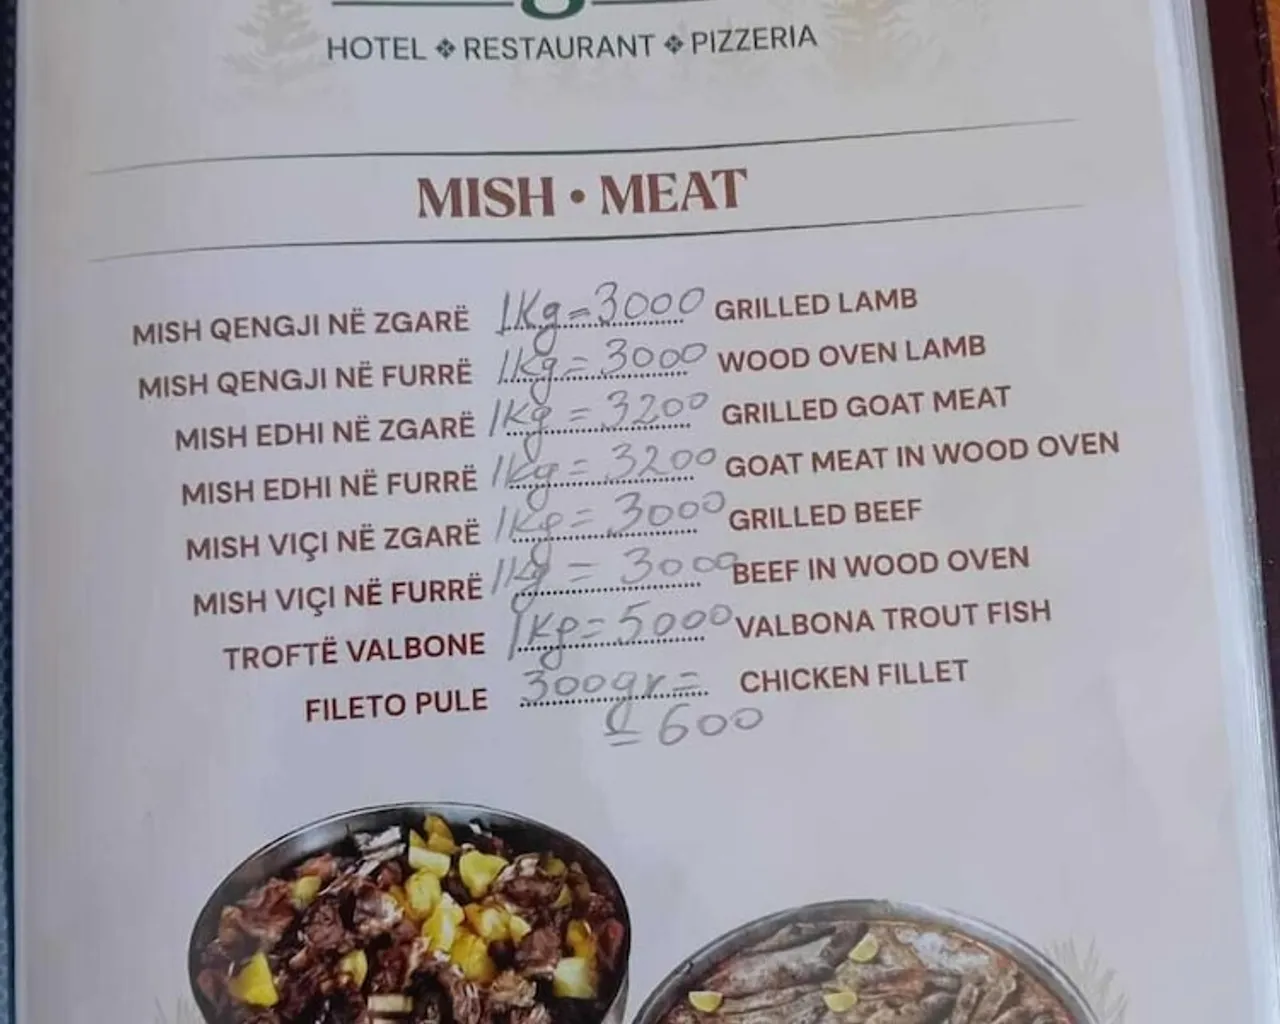 HOTEL ❖ RESTAURANT ❖ PIZZERIA
MISH • MEAT
MISH QENGJI NË ZGARË 1Kg=3000 GRILLED LAMB
MISH QENGJI NË FURRË 1Kg=3000 WOOD OVEN LAMB
MISH EDHI NË ZGARË 1Kg=3200 GRILLED GOAT MEAT
MISH EDHI NË FURRË 1Kg=3200 GOAT MEAT IN WOOD OVEN
MISH VIÇI NË ZGARË 1Kg=3000 GRILLED BEEF
MISH VIÇI NË FURRË 1Kg=3000 BEEF IN WOOD OVEN
TROFTË VALBONE 1Kg=5000 VALBONA TROUT FISH
FILETO PULE 300gr= CHICKEN FILLET
=600